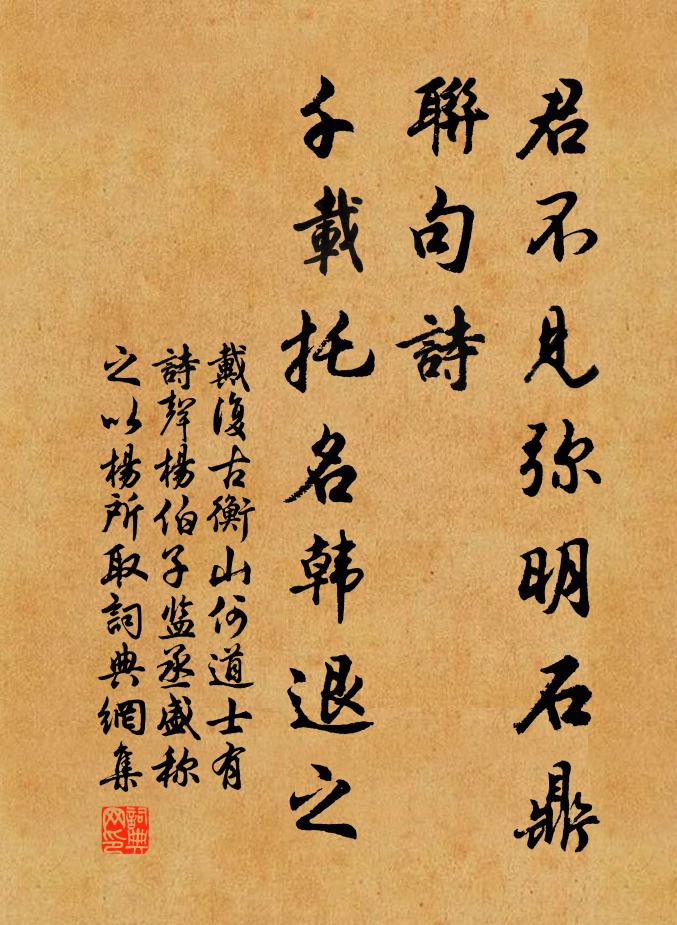 君不見弥明石鼎
聯句詩
千載托名韩退之
戴復古衡山何道士有
詩聲楊伯子监丞盛称
之以楊所取詞典網集
詞典网印